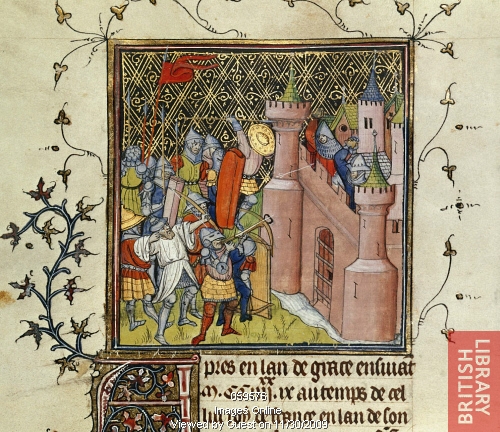 pres en lan de grace ensiuāt
M. CCC. XX
ix au temps de cel
en lan de son
BRITISH LIBRARY
059576
Images Online
Viewed by Guest on 11/30/2009